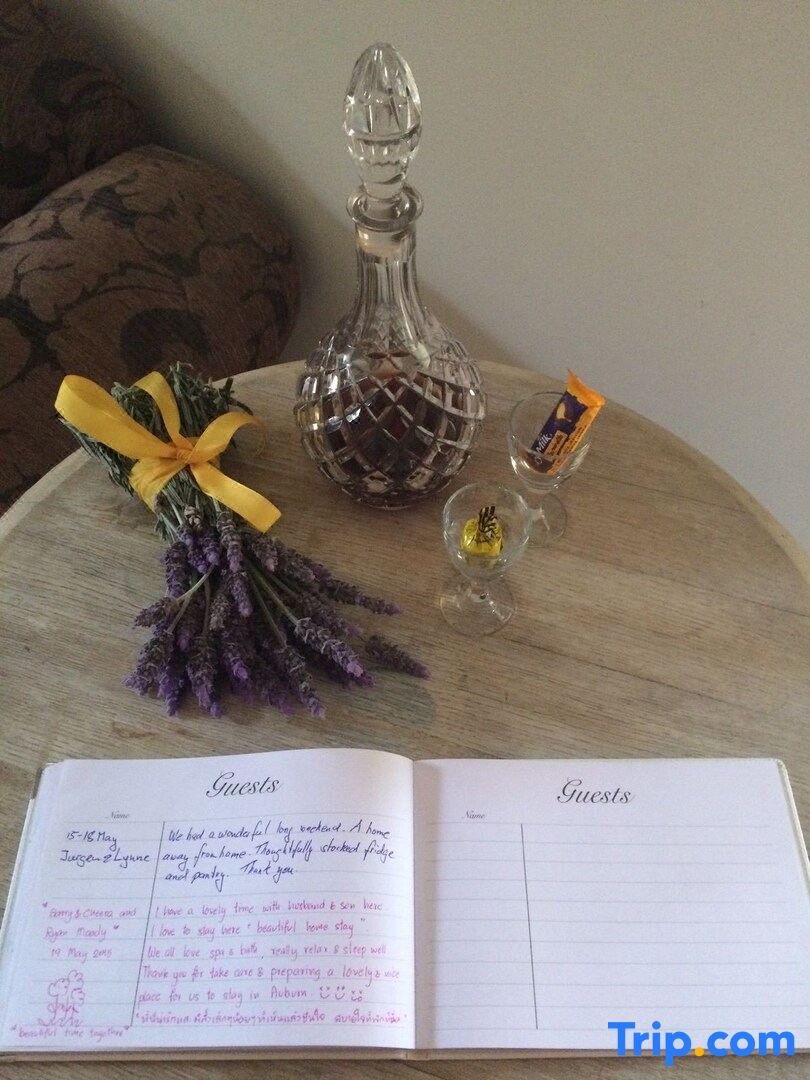 Milk
Guests
Guests
Name
Name
15-18 May
Jurgen & Lynne
We had a wonderful long weekend. A home
away from home. Thoughtfully stocked fridge
and pantry. Thank you.
and
Ryan Moody"
19 May 2015
I have a lovely time with husband & son here
I love to stay here "beautiful home stay".
We all love spa & bath, really relax & sleep well
Thank you for take care & preparing a lovely & nice
place for us to stay in Auburn
"beautiful time together"
Trip.com